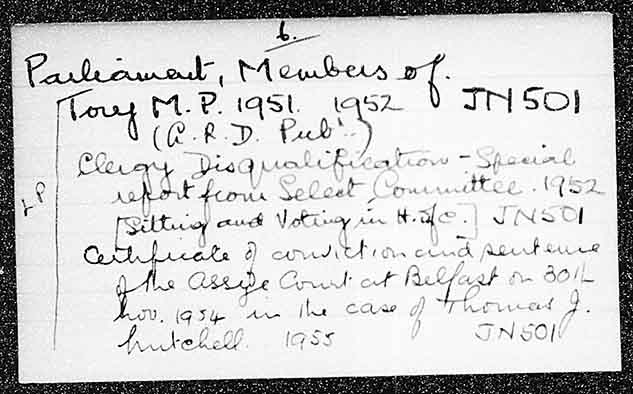 6.
Parliament, Members of.
Tory M.P. 1951. 1952 JN501
(C.R.D. Pubn.)
Clergy Disqualification - Special
report from Select Committee. 1952
LP
[Sitting and Voting in H. of C.] JN501
Certificate of conviction and sentence
of the Assize Court at Belfast on 30th
Nov. 1954 in the case of Thomas J.
Mitchell. 1955 JN501